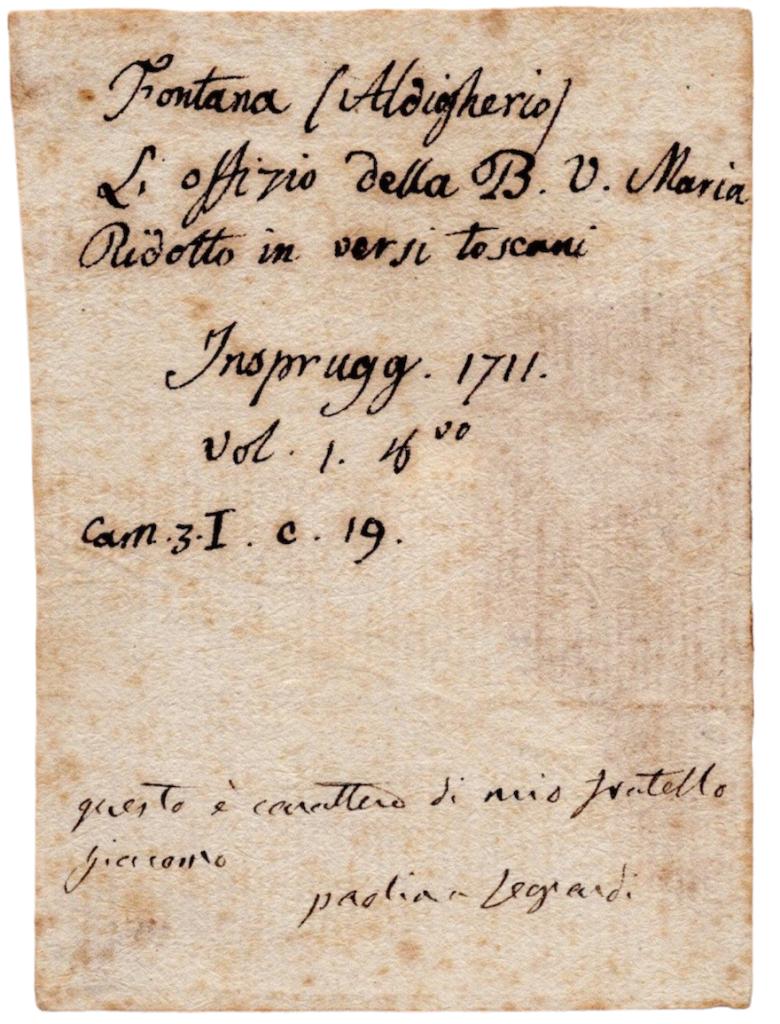 Fontana (Aldigherio)
L' offizio della B. V. Maria
Ridotto in versi toscani
Insprugg. 1711.
vol. 1. 8vo
Cam. 3. I. c. 19.
questo è carattere di mio fratello
giacomo
paolina Leopardi